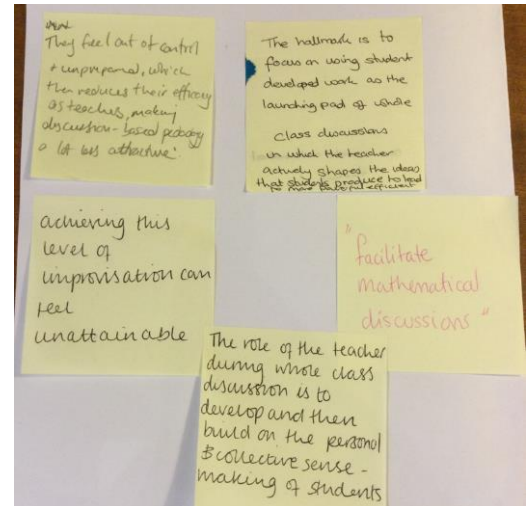 They feel out of control
+ unprepared, which
then reduces their efficacy
as teachers, making
discussion-based pedagogy
a lot less attractive.
The hallmark is to
focus on using student
developed work as the
launching pad of whole
class discussions
in which the teacher
actively shapes the ideas
that students produce to lead
to more powerful, efficient
achieving this
level of
improvisation can
feel
unattainable
"facilitate
mathematical
discussions"
The role of the teacher
during whole class
discussion is to
develop and then
build on the personal
& collective sense-
making of students